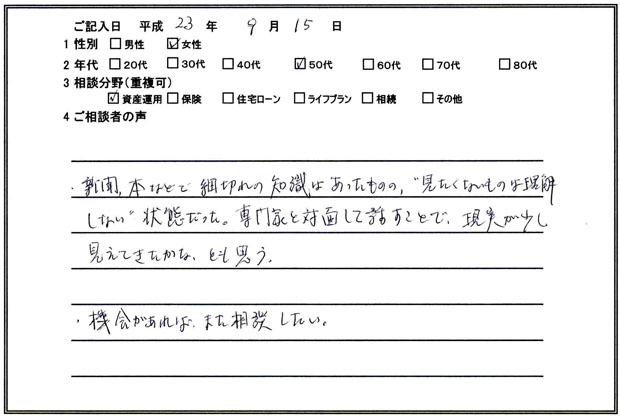 ご記入日 平成 23 年 9 月 15 日
1 性別 □男性 ☑女性
2 年代 □20代 □30代 □40代 ☑50代 □60代 □70代 □80代
3 相談分野(重複可)
☑資産運用 □保険 □住宅ローン □ライフプラン □相続 □その他
4 ご相談者の声
・新聞、本などで細切れの知識はあったものの、"見たくないものは理解
しない"状態だった。専門家と対面して話すことで、現実が少し
見えてきたかな、とも思う。
・機会があれば、また相談したい。